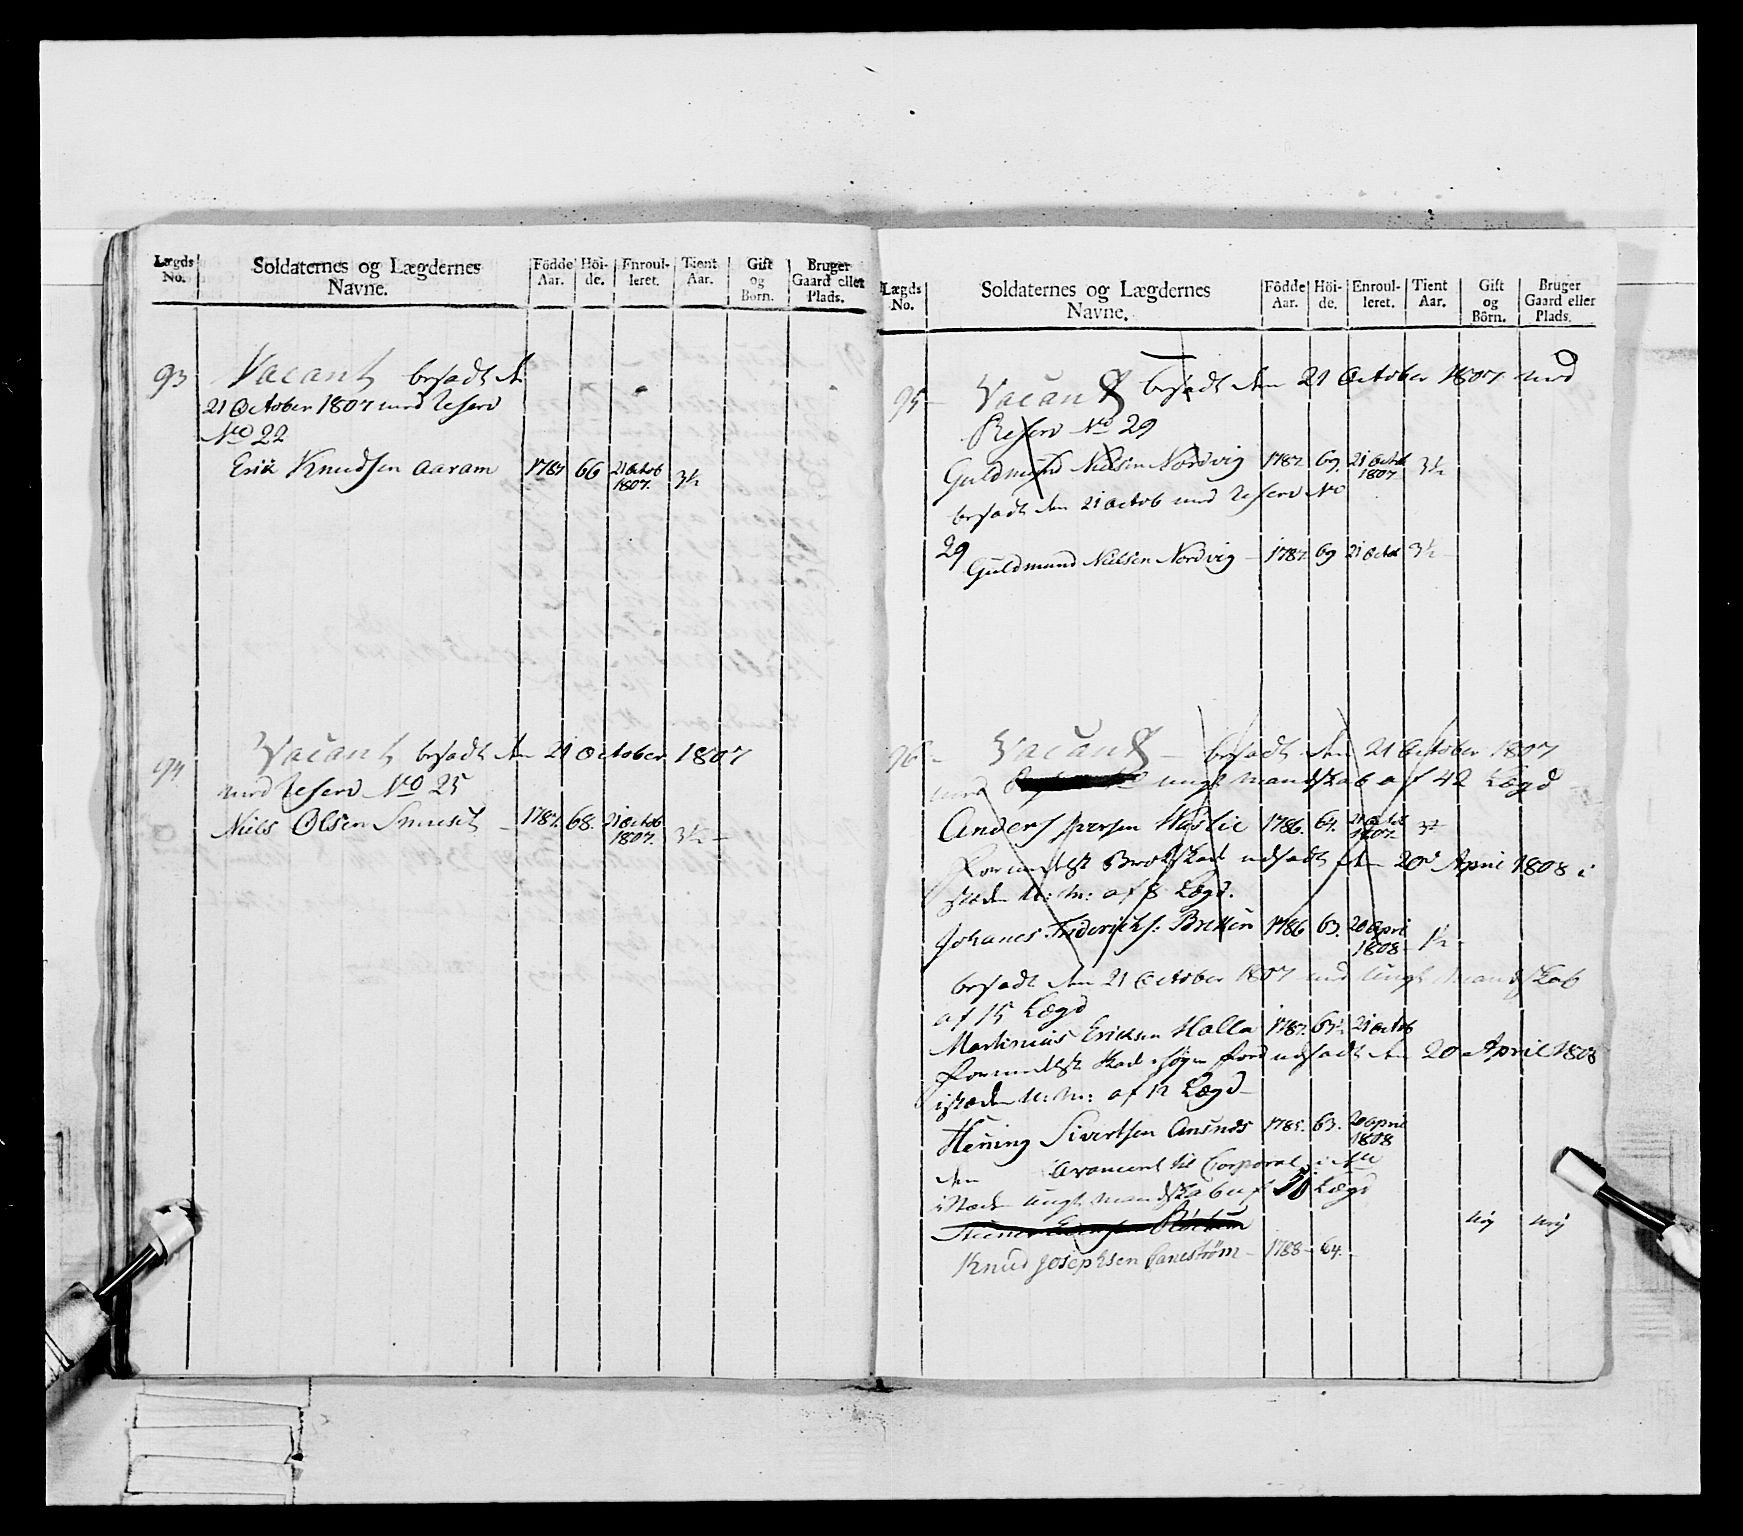 Lægds No. Soldaternes og Lægdernes Navne. Födde Aar. Höi-de. Enroul-leret. Tient Aar. Gift og Börn. Bruger Gaard eller Plads.
93 Vacant besadt den
21 October 1807 med Reserv
No 22
Erik Knudsen Aaram 1787 66 21 Octob 1807. 3½
94 Vacant besadt den 21 October 1807
med Reserv No 25
Niels Olsen 1787. 68. 21 Octob 1807. 3½
Lægds No. Soldaternes og Lægdernes Navne. Födde Aar. Höi-de. Enroul-leret. Tient Aar. Gift og Börn. Bruger Gaard eller Plads.
95 Vacant besadt den 21 October 1807 med
Reserv No 29
Guldmund Nielsen Nordvig 1787. 69. 21 Octob 1807 3½
besadt den 21 Octob med Reserv No
29 Guldmund Nielsen Nordvig 1787. 69 21 Octob 3½
96 Vacant besadt den 21 October 1807
med ungt Mandskab af 42 Lægd
Anders Iversen 1786. 64. 21 Octob 1807.
formedelst Brokskade udsadt den 20 April 1808 i
steden u: M: af 8 Lægd.
Johanes Friderichs: 1786 63. 20 April 1808 1½
besadt den 21 October 1807 med ungt Mandskab
af 15 Lægd
Martinus Ericksen Halla 1787. 63½. 21 Octob
formedelst udsadt den 20 April 1808
isteden u: M: af 12 Lægd
Hening Sivertsen 1785. 63. 20 April 1808
den avanceret til Corporal
isteden ungt Mandskab af 30 Lægd
Knud Josephsen 1788 64. Nej Nej